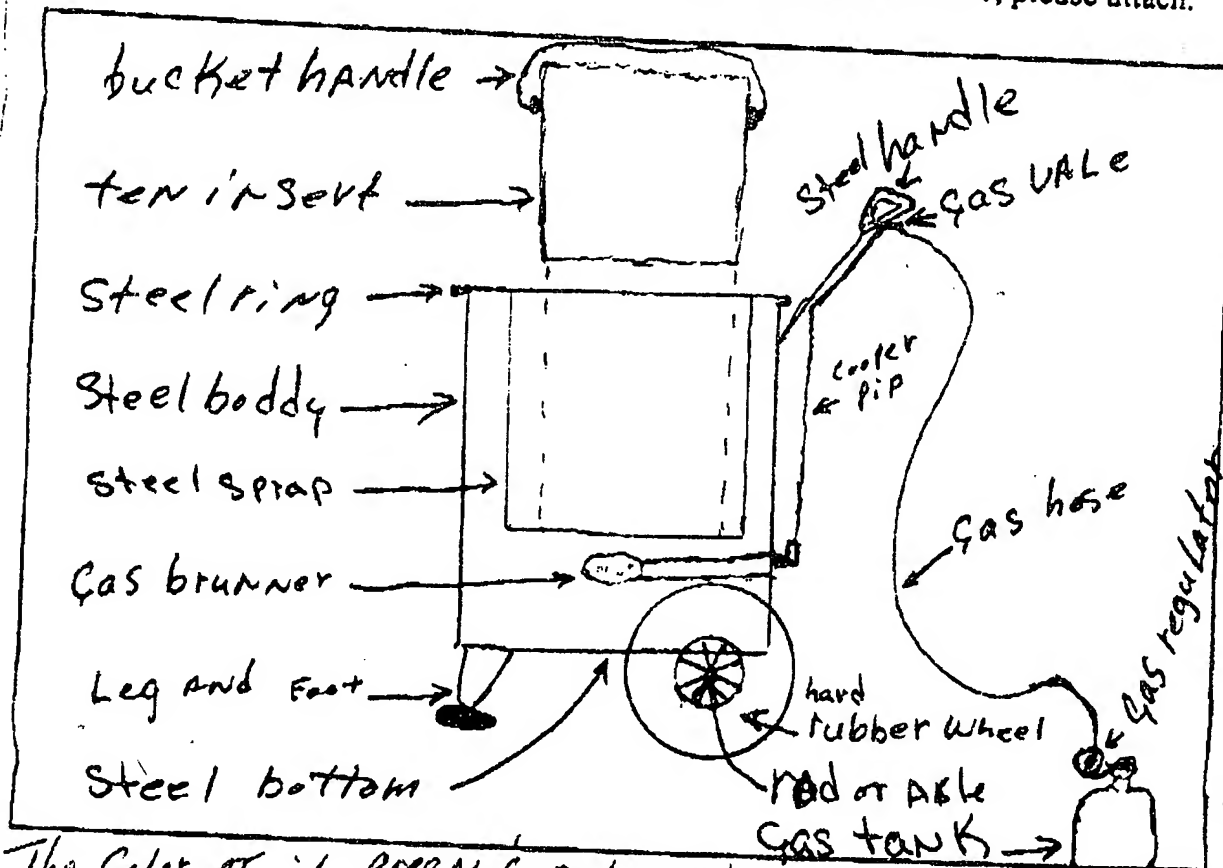 please attach.
bucket handle
ten insert
Steel ring
Steel boddy
Steel sprap
Gas brunner
Leg and Foot
Steel bottom
Steel handle
Gas VALe
cooper
pip
Gas hose
Gas regulator
hard
rubber wheel
rod or Able
Gas tank
The Color of